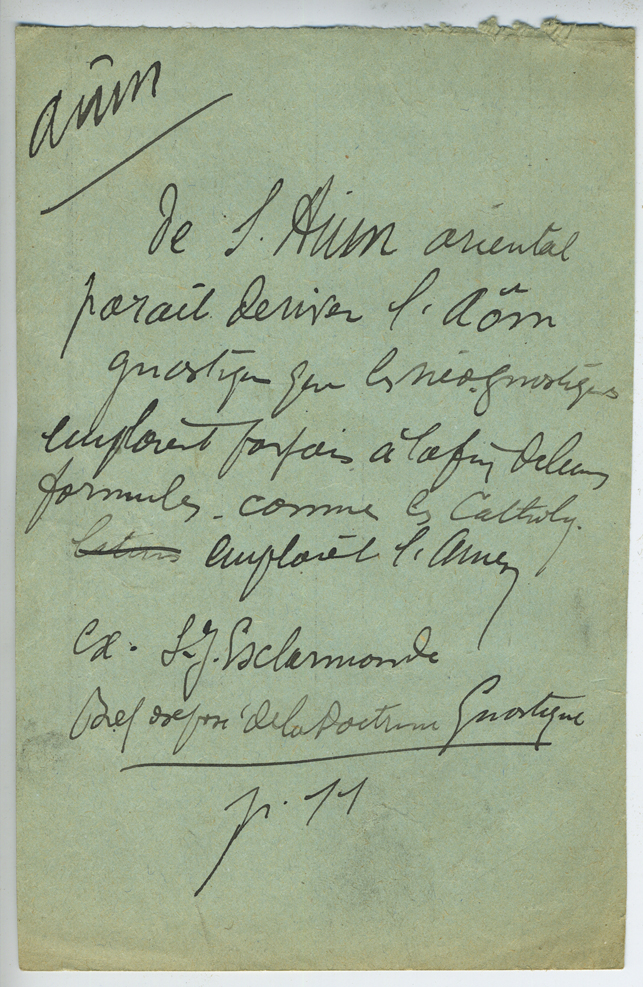 aûm
de l'Aum oriental
parait deriver l'Aôm
gnostique que les néo-gnostiques
emploient parfois à la fin de leurs
formules - comme les Catholiq.
latins emploient l'Amen
ex. S.J. Esclarmonde
Bref exposé de la Doctrine Gnostique
p. 11